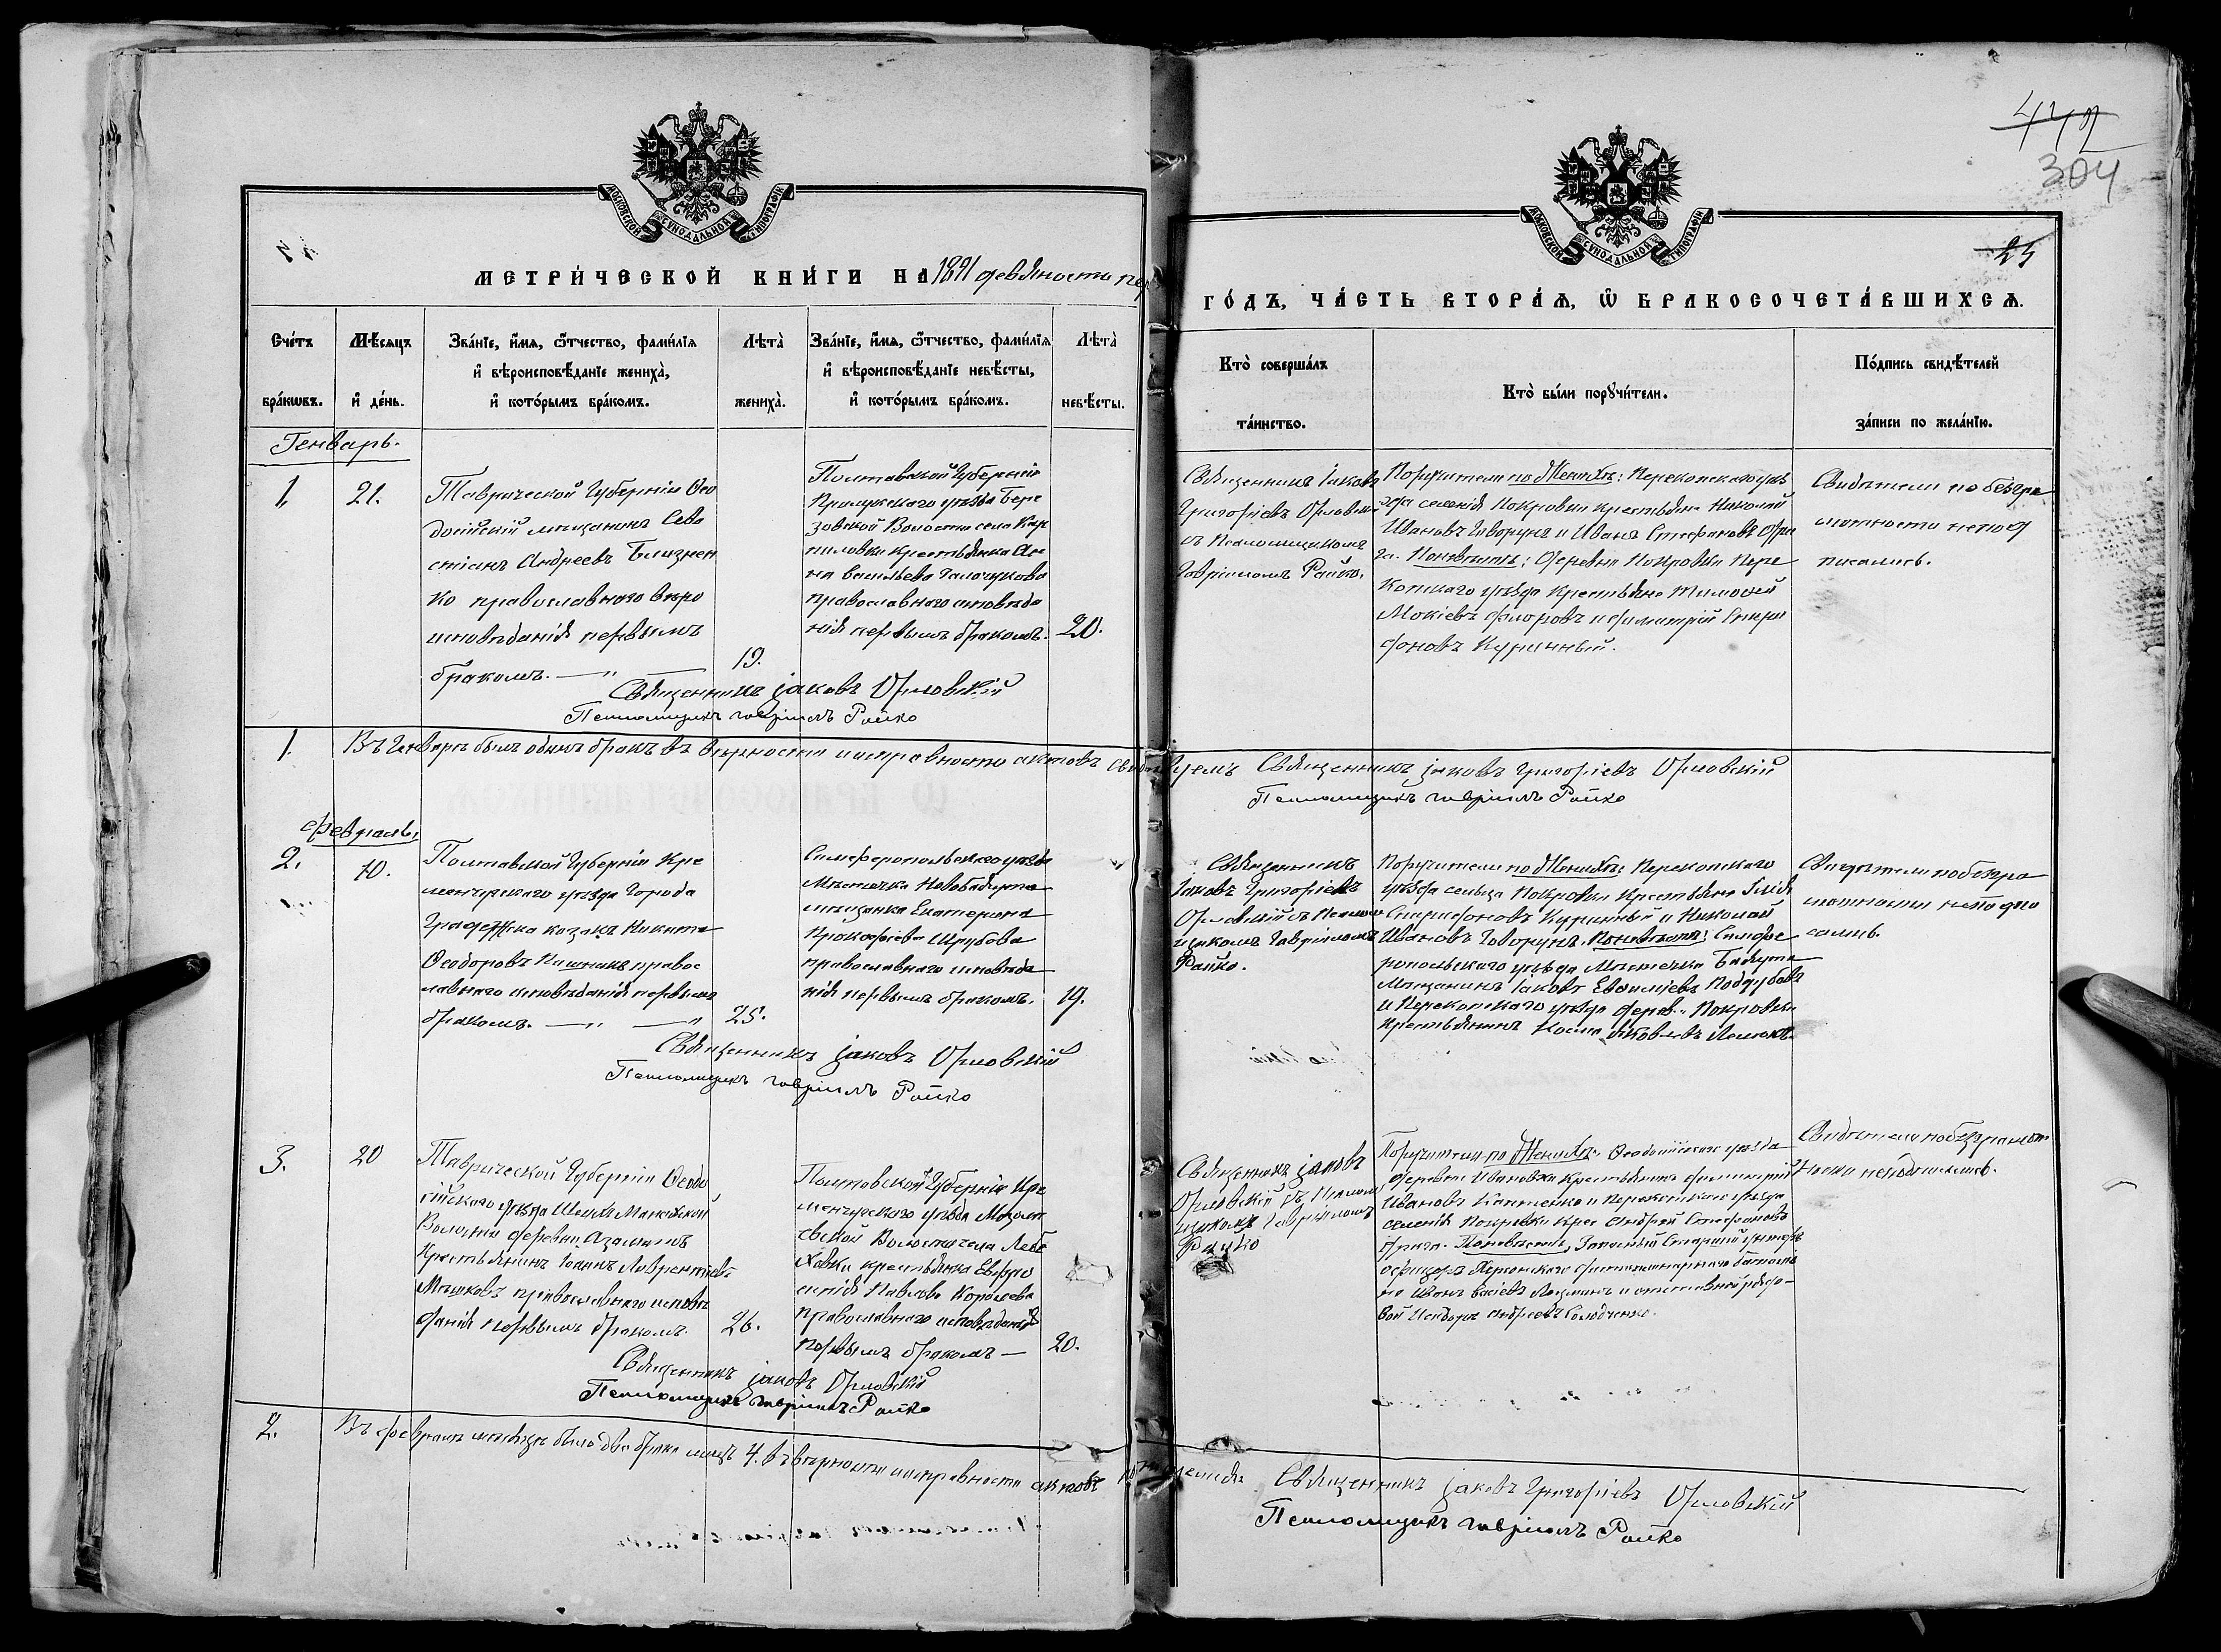 МОСКОВСКОЙ СѴНОДАЛЬНОЙ ТИПОГРАФІИ
МЕТРИ́ЧЕСКОЙ КНИ́ГИ НА 1891 девяносто пер
Сче́тъ бра́кѡвъ.
Мѣ́сяцъ и҆ де́нь.
Зва́нїе, и҆́мѧ, ѻ҆́тчество, фами́лїѧ
и҆ вѣроисповѣ́данїе жениха̀,
и҆ кото́рымъ бра́комъ.
Лѣта̀ жениха̀.
Зва́нїе, и҆́мѧ, ѻ҆́тчество, фами́лїѧ
и҆ вѣроисповѣ́данїе невѣ́сты,
и҆ кото́рымъ бра́комъ.
Лѣта̀ невѣ́сты.
Генварь.
1.
21.
Таврической Губерніи Ѳео
досійскій мѣщанинъ Сева
стіанъ Андреевъ Близнен
ко православнаго вѣро
исповѣданія первымъ
бракомъ. — „ —
19.
Полтавской Губерніи
Прилукскаго уѣзда Бере
зовской Волости села Кар
пиловки крестьянка Ан
на Васильева
православнаго исповѣда
нія первымъ бракомъ.
20.
Священникъ Іаковъ Орловскій
Псаломщикъ Гавріилъ Райко
1.
Въ Генварѣ былъ одинъ бракъ въ вѣрности и исправности актовъ
февраль.
2.
10.
Полтавской Губерніи Кре
менчугскаго уѣзда Города
Градижска козакъ Никита
Ѳеодоровъ Кишникъ правос
лавнаго исповѣданія первымъ
бракомъ. — „ — „
25.
Симферопольскаго уѣзда
Мѣстечка
мѣщанка Екатерина
Прокофіева Шрубова
православнаго исповѣда
нія первымъ бракомъ.
19.
Священникъ Іаковъ Орловскій
Псаломщикъ Гавріилъ Райко
3.
20
Таврической Губерніи Ѳеодо
сійскаго уѣзда
Волости деревни
Крестьянинъ Іоаннъ Лаврентіевъ
Мѣшковъ православнаго исповѣ
данія первымъ бракомъ.
26.
Полтавской Губерніи Кре
менчугскаго уѣзда
Волости села
крестьянка Евфро
синія Павлова Королева
православнаго исповѣданія
первымъ бракомъ —
20.
Священникъ Іаковъ Орловскій
Псаломщикъ Гавріилъ Райко
2.
Въ февралѣ мѣсяцѣ было два брака лицъ 4. въ вѣрности и исправности актовъ
442
304
МОСКОВСКОЙ СѴНОДАЛЬНОЙ ТИПОГРАФІИ
ГО́ДЪ, ЧА́СТЬ ВТОРА́Ѧ, Ѡ҆ БРАКОСОЧЕТА́ВШИХСѦ.
Кто̀ соверша́лъ
та́инство.
Кто̀ бы́ли порꙋчи́тели.
По́дпись свидѣ́телей
за́писи по жела́нїю.
Священникъ Іаковъ
Григоріевъ Орловскій
съ Псаломщикомъ
Гавріиломъ Райко.
Поручители по Женихѣ: Перекопскаго уѣз
да селенія Покровки крестьяне Николай
Ивановъ Говорунъ и Иванъ Стефановъ
Поневѣстѣ: деревни Покровки Пере
копскаго уѣзда Крестьяне Тимоѳей
Мокіевъ и Димитрій Спири
доновъ Куринный.
Свидѣтели по безгра
мотности не под
писались.
Священникъ Іаковъ Григоріевъ Орловскій
Псаломщикъ Гавріилъ Райко
Священникъ
Іаковъ Григоріевъ
Орловскій съ Псалом
щикомъ Гавріиломъ
Райко.
Поручители по Женихѣ: Перекопскаго
уѣзда сельца Покровки Крестьяне
Спиридоновъ Куринный и Николай
Ивановъ Говорунъ. Поневѣстѣ: Симфе
ропольскаго уѣзда Мѣстечка
Мѣщанинъ Іаковъ Поддубовъ
и Перекопскаго уѣзда дерев. Покровки
Крестьянинъ Косма Яковлевъ
Свидѣтели по безгра
мотности неподпи
сались.
Священникъ Іаковъ
Орловскій съ Псалом
щикомъ Гавріиломъ
Райко
Поручители по Женихѣ: Ѳеодосійскаго уѣзда
деревни Ивановки Крестьянинъ Димитрій
Ивановъ и Перекопскаго уѣзда
селенія Покровки Крес. Андрей Стефановъ
Поневѣстѣ, Запасный Старшій унтеръ
офицеръ
Иванъ и отставной рядо-
вой Исидоръ Андреевъ Солодченко.
Свидѣтели по безграмот
ности неподписались.
Священникъ Іаковъ Григоріевъ Орловскій
Псаломщикъ Гавріилъ Райко